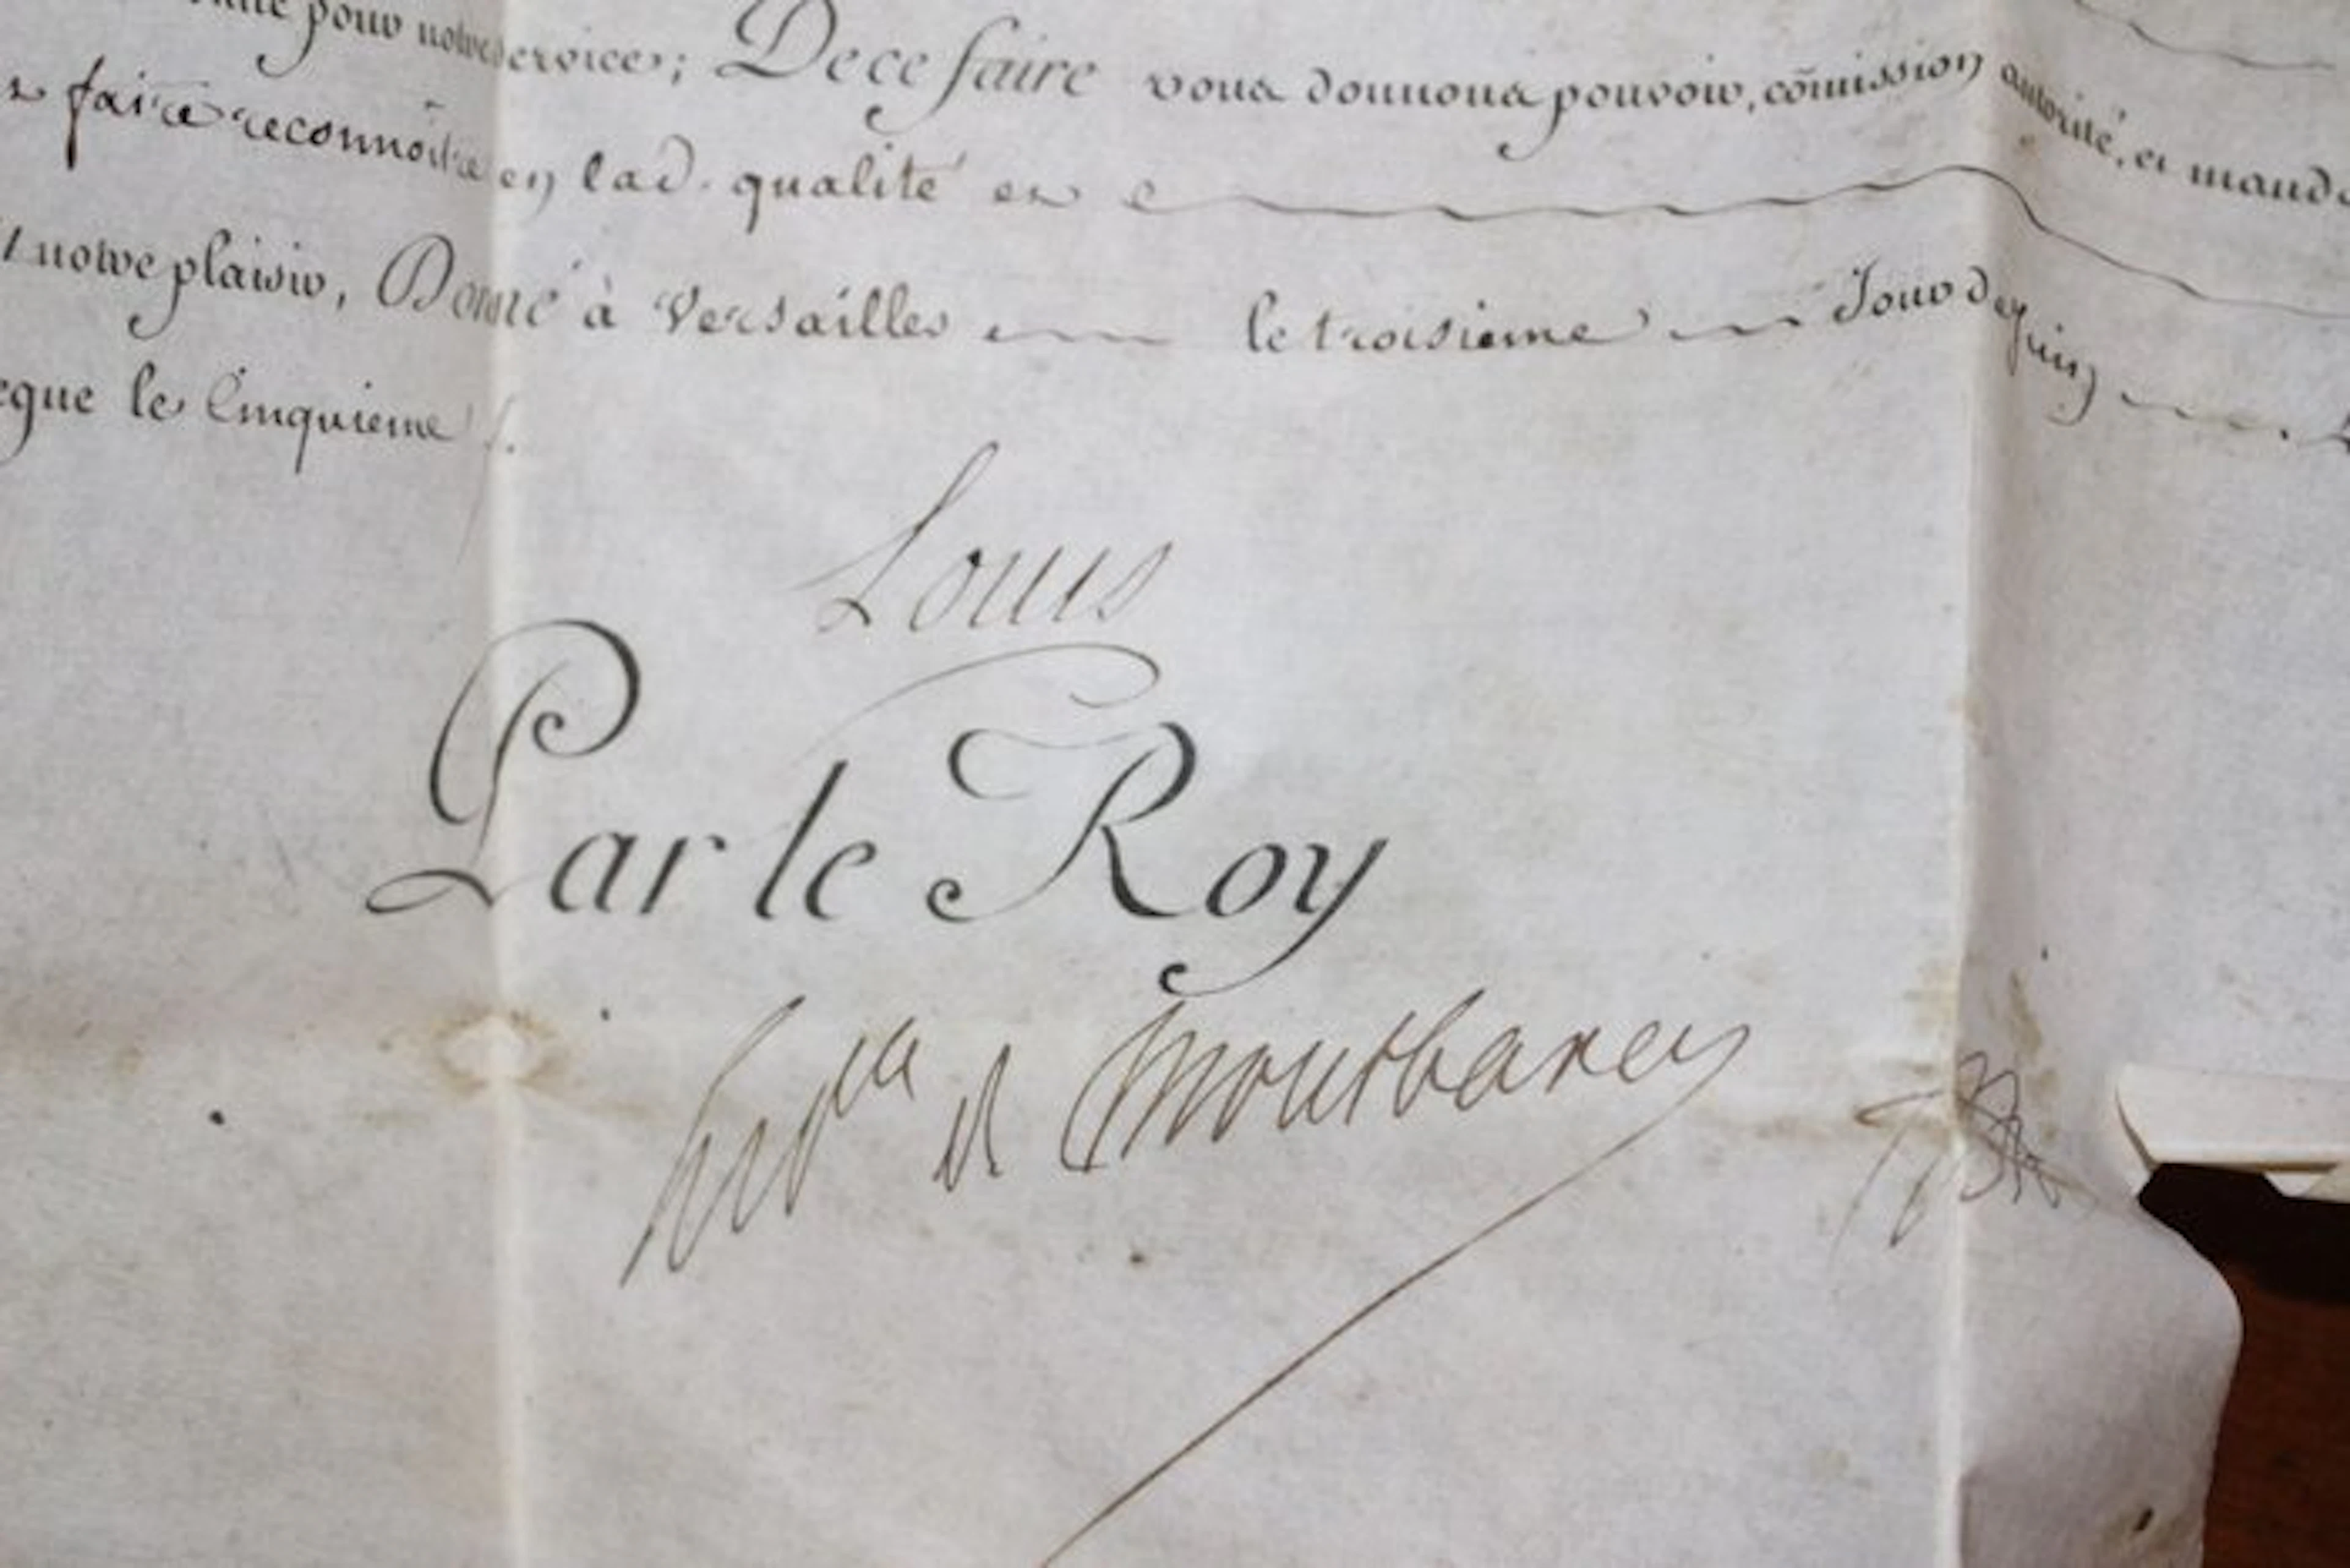 pour notre service; De ce faire vous donnons pouvoir, com̃ission autorité, et mand
faire reconnoître en lad. qualité et e
notre plaisir, Donné à Versailles le troisieme Jour de juin
egue le Cinquieme
Louis
Par le Roy
de Montbarey